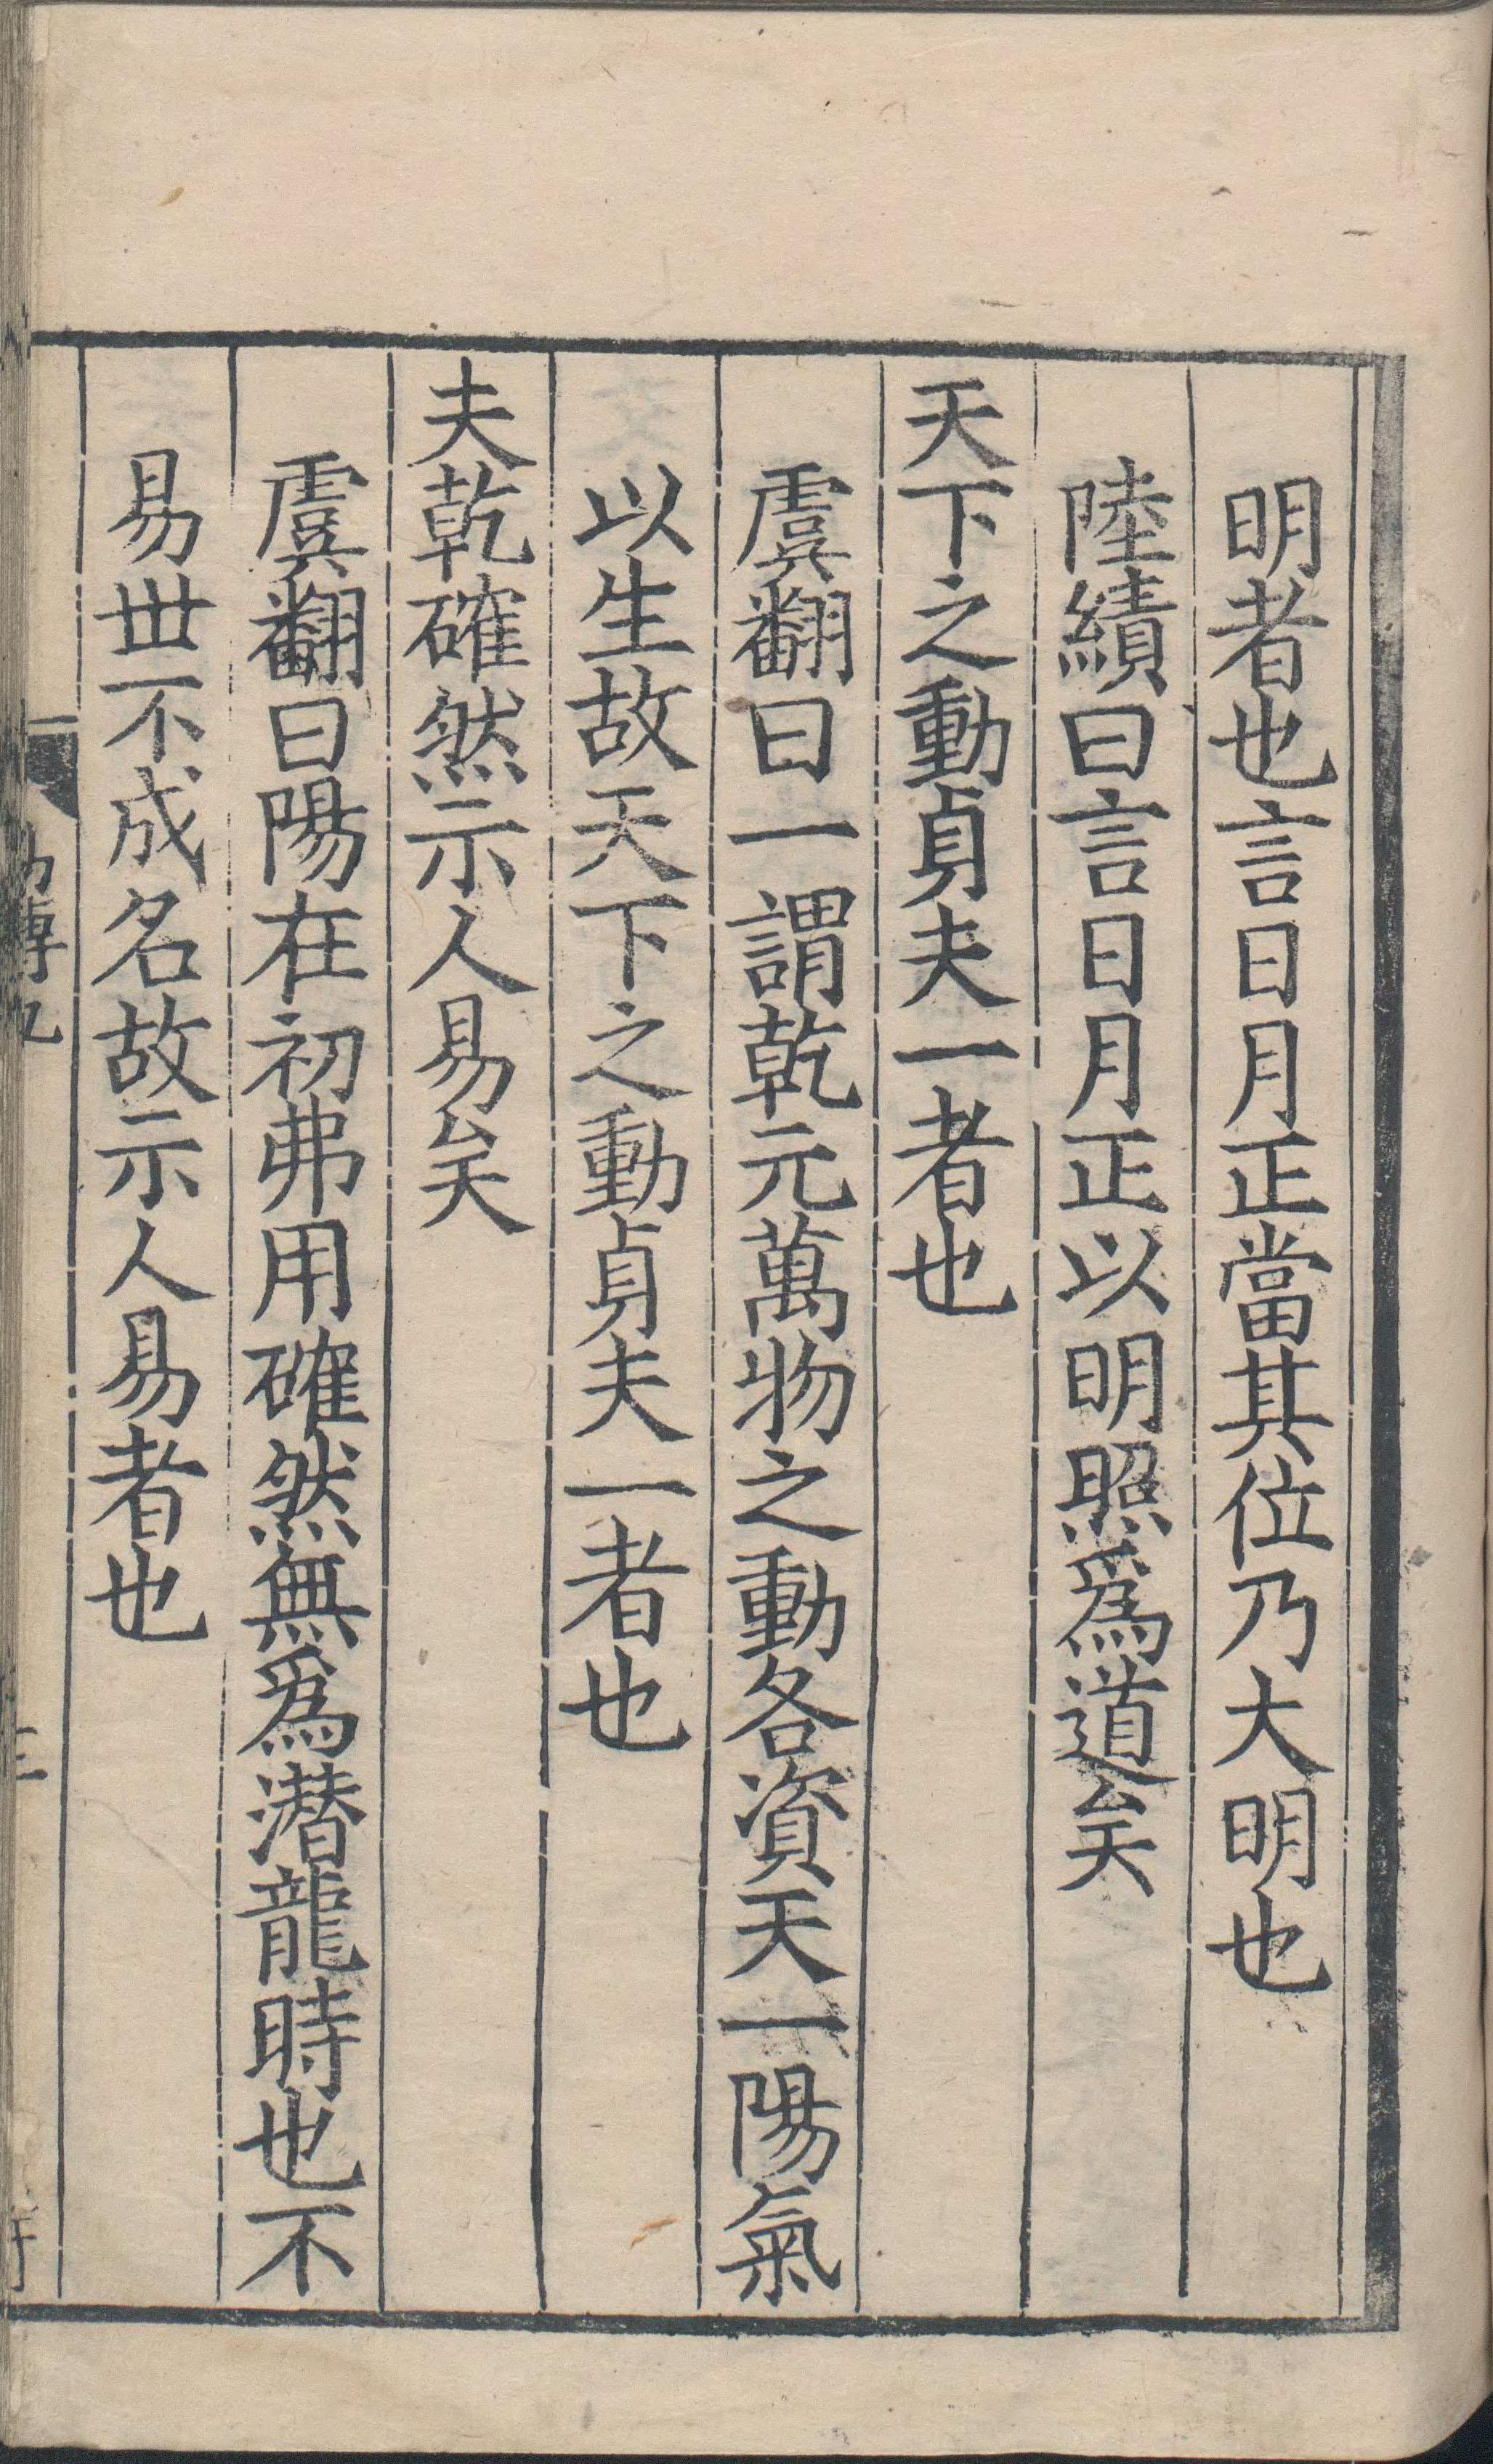 明者也言日月正當其位乃大明也
陸績曰言日月正以明照爲道矣
天下之動貞夫一者也
虞翻曰一謂乾元萬物之動各資天一陽氣
以生故天下之動貞夫一者也
夫乾確然示人易矣
虞翻曰陽在初弗用確然無爲潛龍時也不
易世不成名故示人易者也